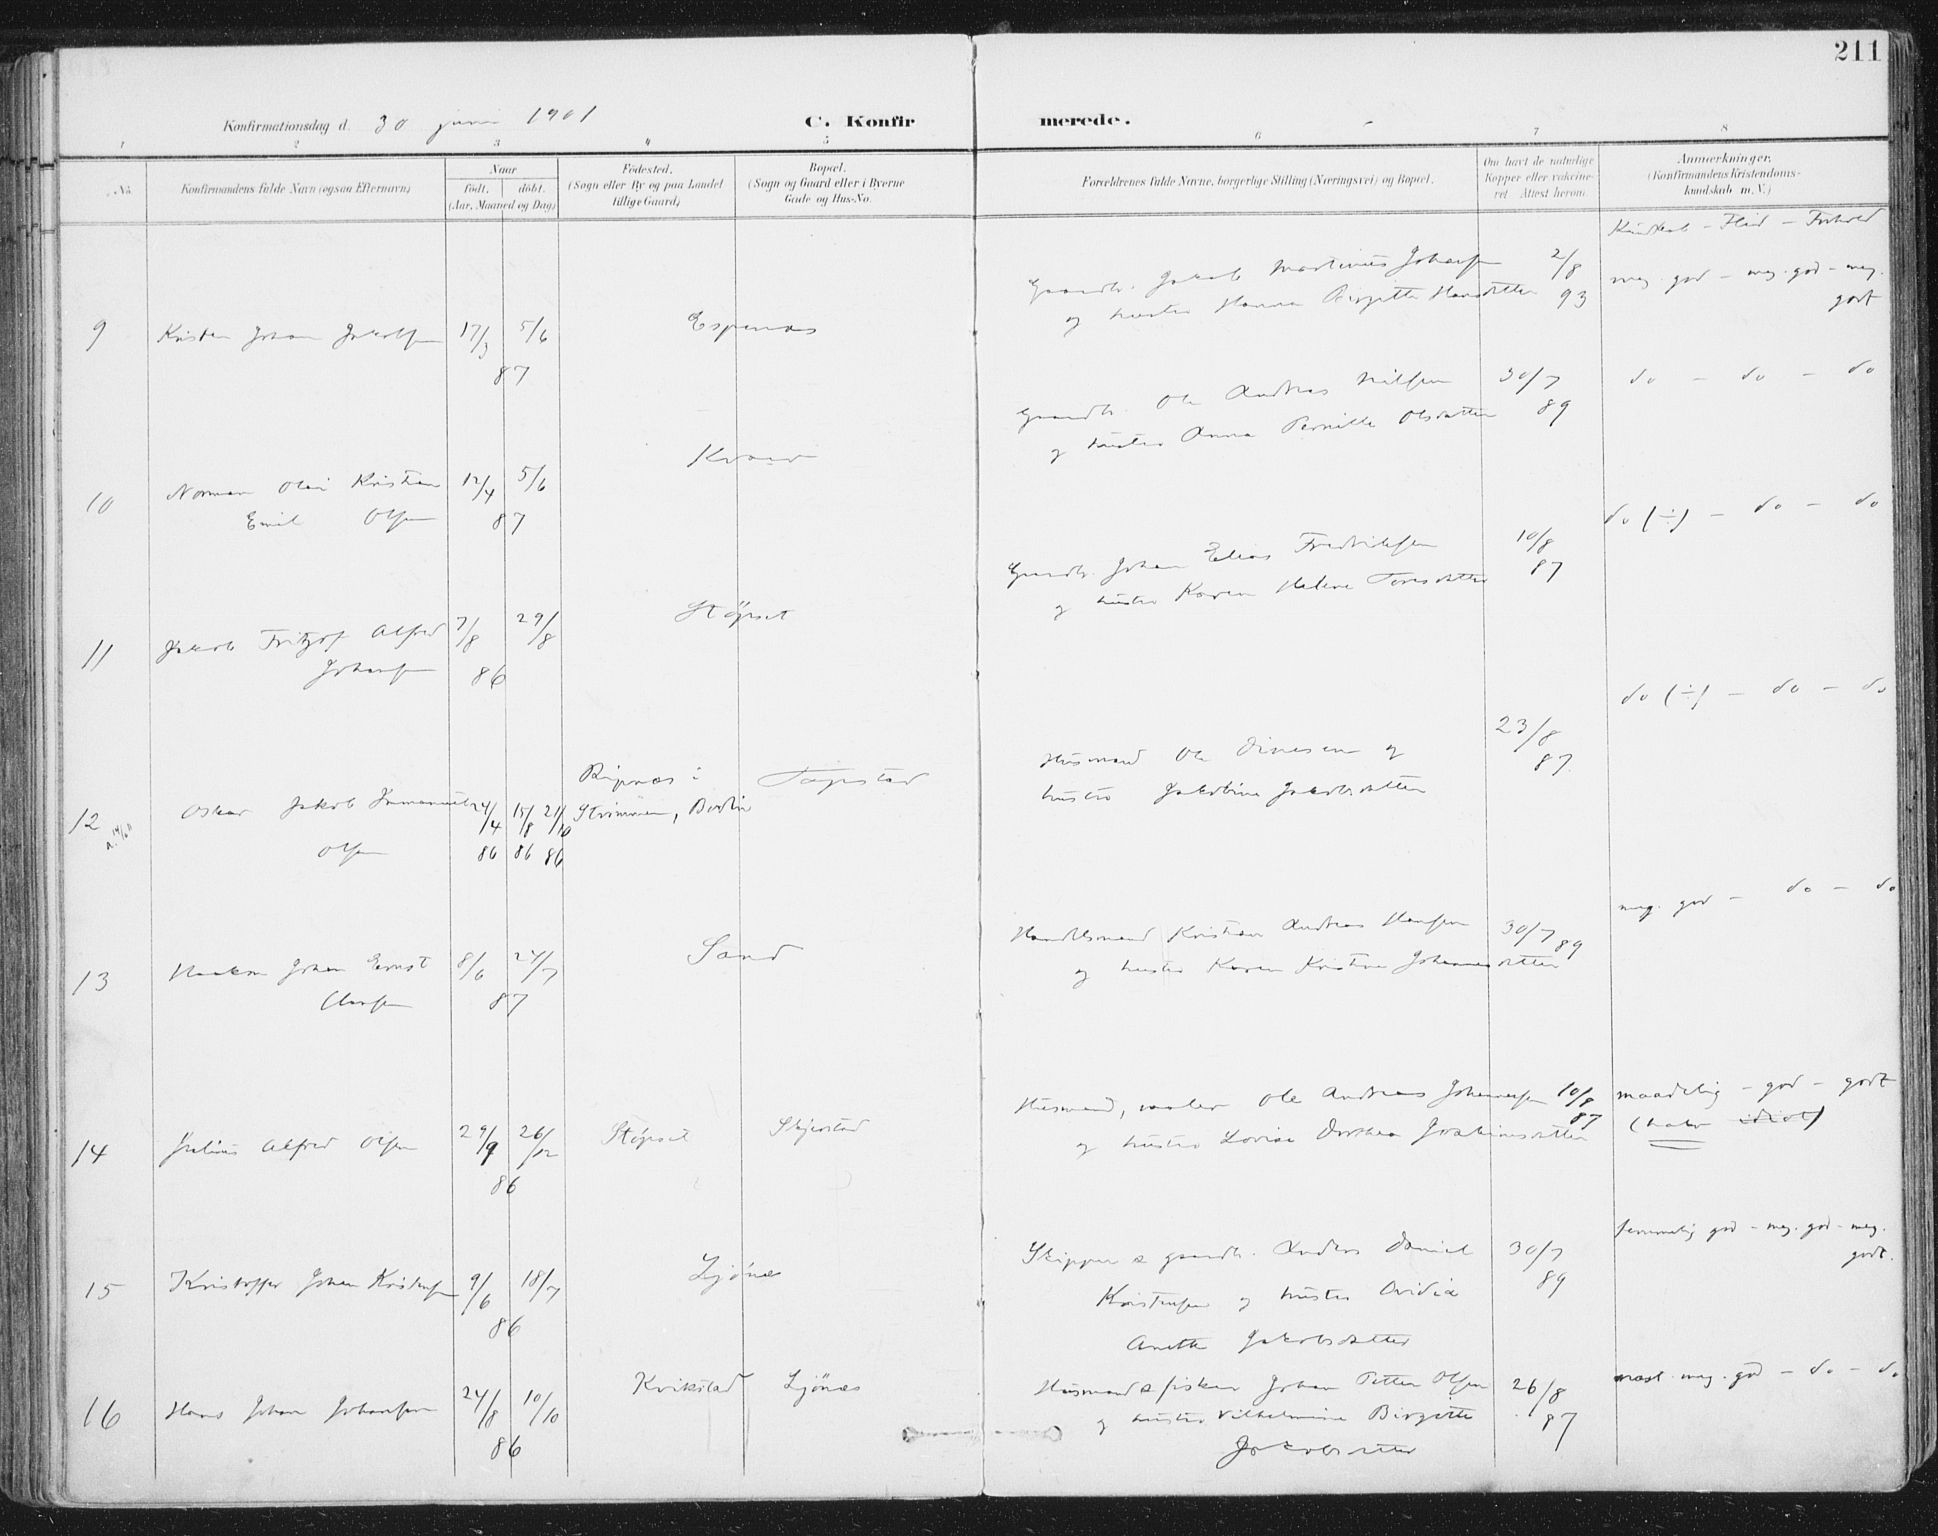 211
Konfirmationsdag d. 30 juni 1901
C. Konfirmerede.
1 2 3 4 5 6 7 8
No.
Konfirmandens fulde Navn (ogsaa Efternavn)
Naar
født. døbt.
(Aar, Maaned og Dag)
Fødested.
(Sogn eller By og paa Landet
tillige Gaard)
Bopæl.
(Sogn og Gaard eller i Byerne
Gade og Hus-No.
Forældrenes fulde Navne, borgerlige Stilling (Næringsvei) og Bopæl.
Om havt de naturlige
Kopper eller vakcine-
ret. Attest herom.
Anmerkninger.
(Konfirmandens Kristendoms-
kundskab m. V.)
Kundskab - Flid - Forhold
9 Kristen Johan Jakobsen 17/3 5/6
87
Espenæs
Gaardb. Jakob Martinus Johansen
og hustru Hanna Birgitte Hansdatter
2/8
93
meg. god - meg. god - meg.
godt
10 Norman Olai Kristian
Emil Olsen
12/4 5/6
87
Kvarv
Gaardb. Ole Andreas Nilsen
og hustru Anna Pernille Olsdatter
30/7
89
do - do - do
11 Jakob Fritjof Alfred
Johansen
7/8 29/8
86
Støpset
Gaardb. Johan Elias Fredriksen
og hustru Karen Helene Toresdatter
10/8
87
do (÷) - do - do
12 Oskar Jakob Immanuel
Olsen
24/4 15/8 21/10
86 86 86
Ripnæs i
Strømmen, Bodin
Husmand Ole Dinesen og
hustru Jakobine Jakobsdatter
23/8
87.
do (÷) - do - do
13 Haakon Johan Ernst
8/6 24/7
87
Sand
Handelsmand Kristian Andreas Hansen
og hustru Karen Kristine Johannesdatter
30/7
89
meg. god - do - do
14 Julius Alfred Olsen
29/9 26/12
86
Støpset Skjerstad
Husmand, maler Ole Andreas Johannesen
og hustru Lovise Dorthea Joakimsdatter
10/8
87
maadelig - god - godt
15 Kristoffer Johan Kristensen
9/6 18/7
86
Ljønes
Skipper & gaardb. Anders Daniel
Kristensen og hustru Ovidia
Anette Jakobsdatter
30/7
89
temmelig god - meg. god - meg.
godt.
16 Hans Johan Johansen
24/8 10/10
86
Kvikstad Ljønes
Husmand & fisker Johan Petter Olsen
og hustru Vilhelmine Birgitte
Jakobsdatter
26/8
87
næst meg. god - do - do